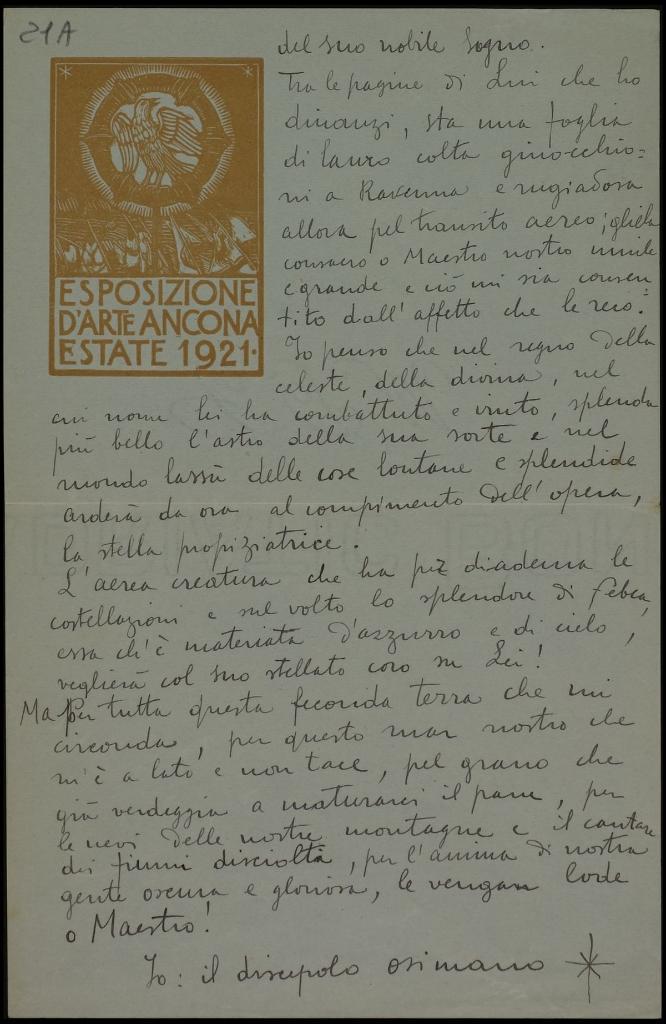 21A
ESPOSIZIONE
D'ARTE ANCONA
ESTATE 1921.
del suo nobile sogno.
Tra le pagine di Lui che ho
dinanzi, sta una foglia
di lauro colta ginocchio=
ni a Ravenna e rugiadosa
allora pel transito aereo; gliela
consacro o Maestro nostro umile
e grande e ciò mi sia consen
tito dall'affetto che le reco.
Io penso che nel regno della
celeste, della divina, nel
cui nome lei ha combattuto e vinto, splenda
più bello l'astro della sua sorte e nel
mondo lassù delle cose lontane e splendide
arderà da ora al compimento dell'opera,
la stella propiziatrice.
L'aerea creatura che ha per diadema le
costellazioni e sul volto lo splendore di febea,
essa ch'è materiata d'azzurro e di cielo,
veglierà col suo stellato coro su Lei!
Ma per tutta questa feconda terra che mi
circonda, per questo mar nostro che
m'è a lato e non tace, pel grano che
già verdeggia a maturarci il pane, per
le nevi delle nostre montagne e il cantare
dei fiumi disciolta, per l'anima di nostra
gente oscura e gloriosa, le vengan lode
o Maestro!
Io: il discepolo osimano